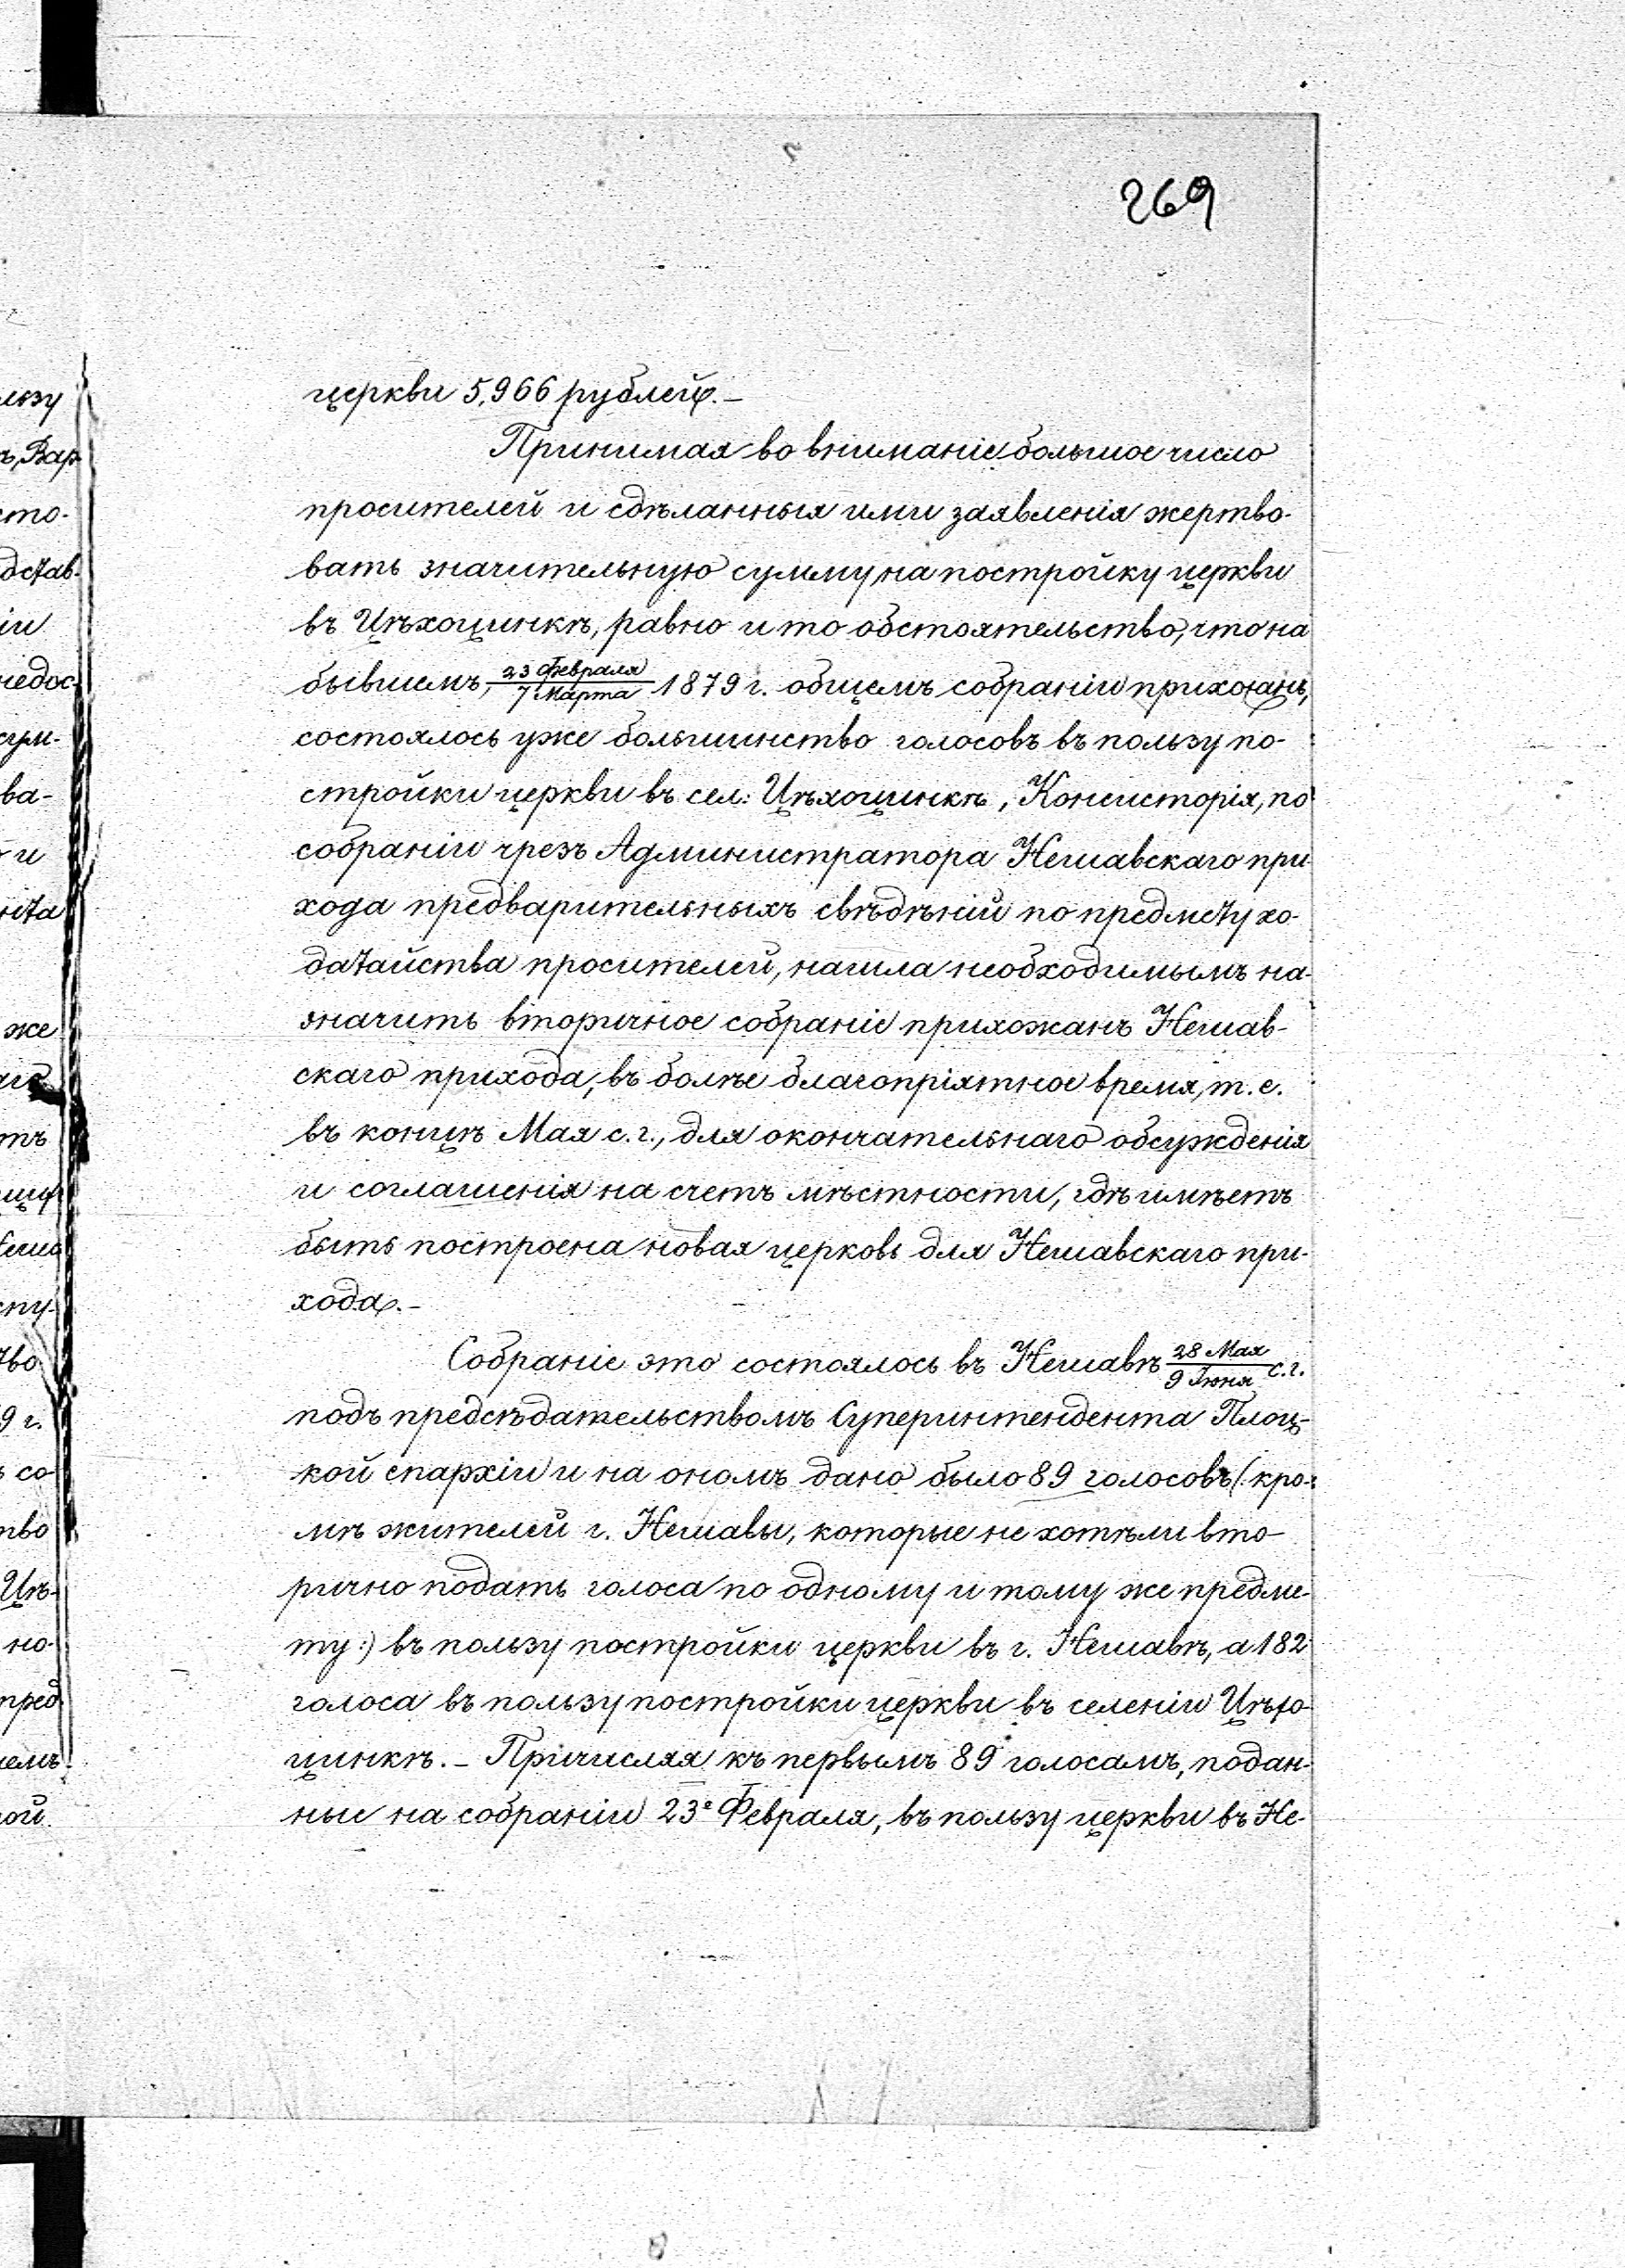 269
церкви 5,966 рублей.–
Принимая во вниманіе большое число
просителей и сдѣланныя ими заявленія жертво-
вать значительную сумму на постройку церкви
въ Цѣхоцинкѣ, равно и то обстоятельство, что на
бывшемъ, 23 Февраля / 7 Марта 1879 г. общемъ собраніи прихожанъ,
состоялось уже большинство голосовъ въ пользу по-
стройки церкви въ сел: Цѣхоцинкѣ, Консисторія, по
собраніи чрезъ Администратора Нешавскаго при
хода предварительныхъ свѣдѣній по предмету хо-
датайства просителей, нашла необходимымъ на-
значить вторичное собраніе прихожанъ Нешав-
скаго прихода, въ болѣе благопріятное время, т. е.
въ концѣ Мая с. г., для окончательнаго обсужденія
и соглашенія на счетъ мѣстности, гдѣ имѣетъ
быть построена новая церковь для Нешавскаго при-
хода.–
Собраніе это состоялось въ Нешавѣ 28 Мая / 9 Іюня с. г.
подъ предсѣдательствомъ Суперинтендента Плоц-
кой епархіи и на ономъ дано было 89 голосовъ (: кро-
мѣ жителей г. Нешавы, которые не хотѣли вто-
рично подать голоса по одному и тому же предме-
ту :) въ пользу постройки церкви въ г. Нешавѣ, а 182
голоса въ пользу постройки церкви въ селеніи Цѣхо-
цинкѣ.– Причисляя къ первымъ 89 голосамъ, подан-
ные на собраніи 23е Февраля, въ пользу церкви въ Не-